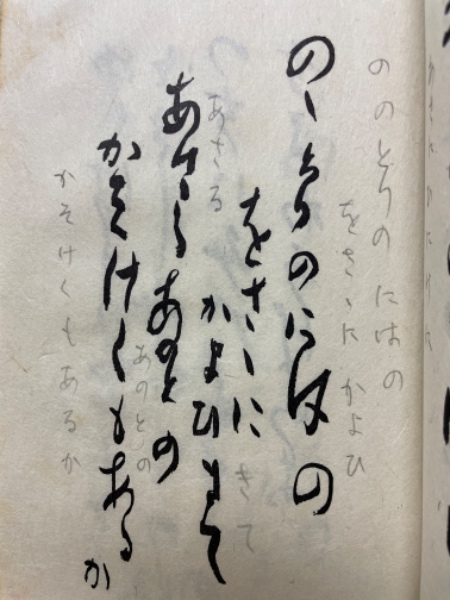 ののとりの にはの
をさゝに かよひ
のゝとりのにはの
をさゝに
きて
かよひきて
あさる
あさる
あのとの
あのとの
かそけくもあるか
かそけくもあるか